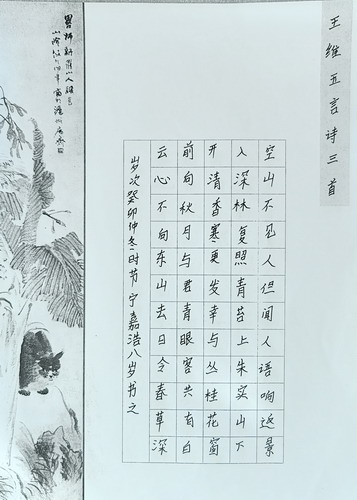 王维五言诗三首
空山不见人但闻人语响返景
入深林复照青苔上朱实山下
开清香寒更发幸与丛桂花窗
前向秋月与君青眼客共有白
云心不向东山去日令春草深
岁次癸卯仲冬时节宁嘉浩八岁书之
師新羅山人